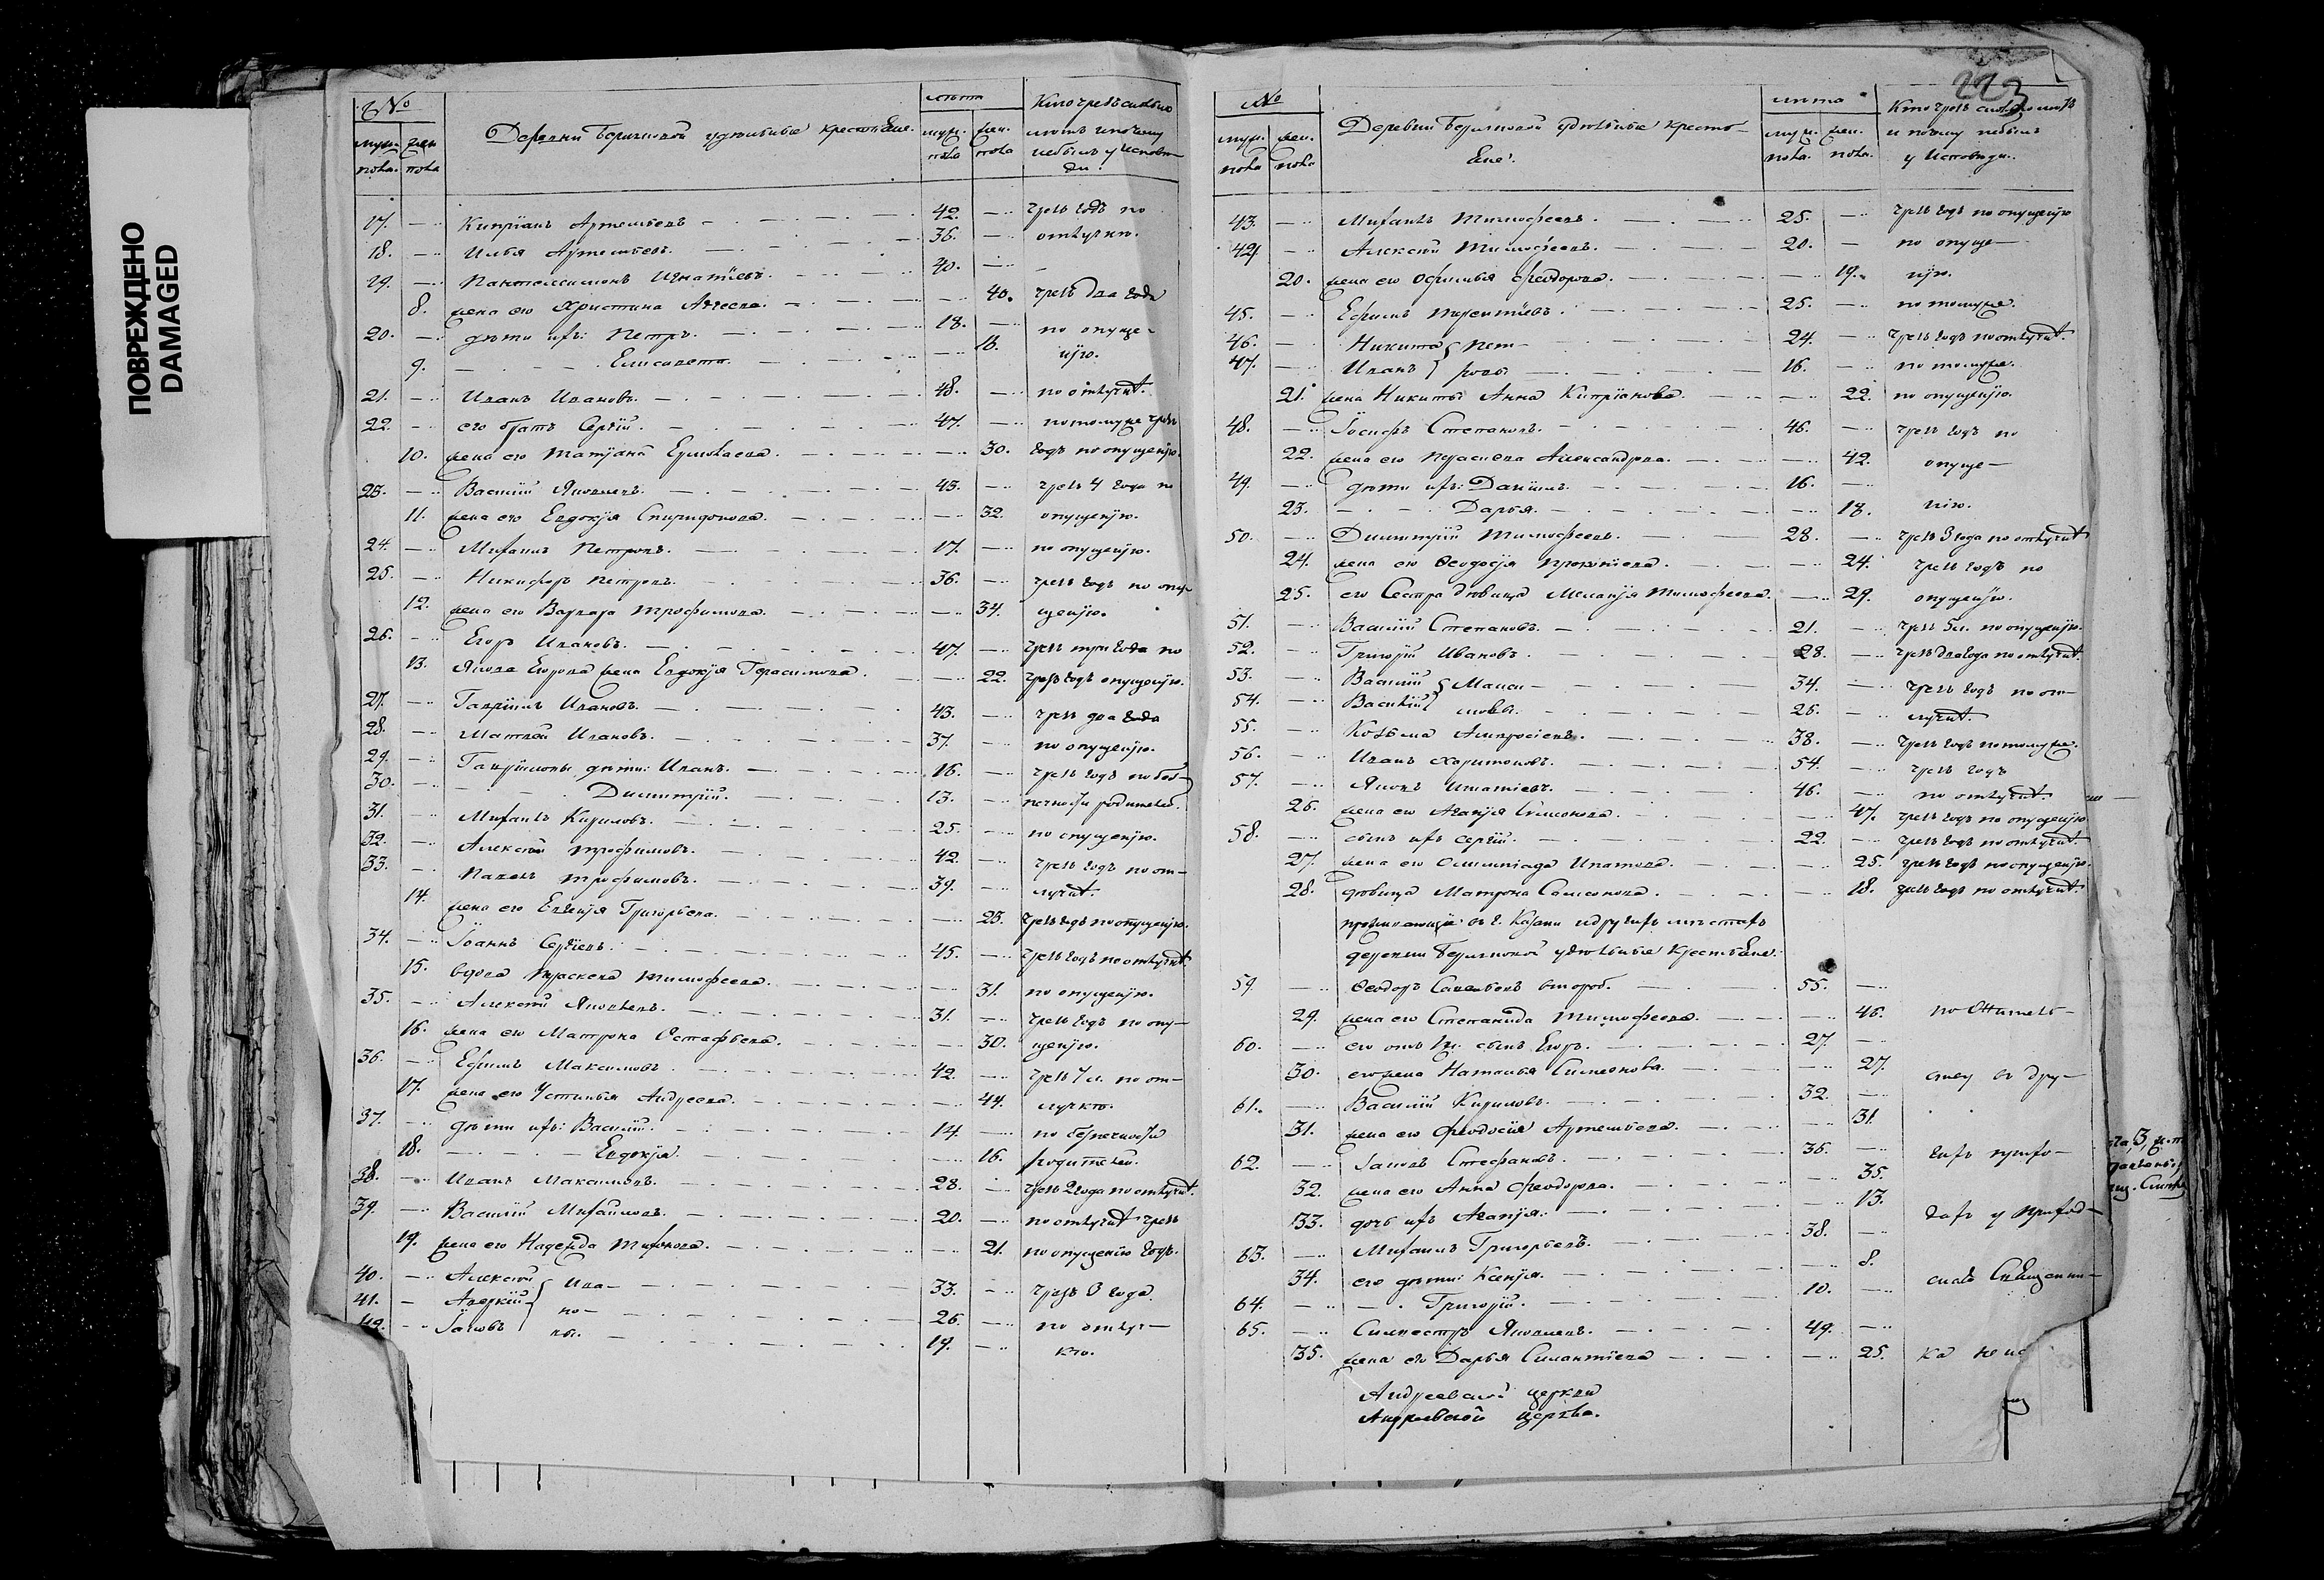 ПОВРЕЖДЕНО
DAMAGED
№ Деревни удѣльные крестьяне. лѣта
муж. пола жен. пола муж. пола жен. пола и почему небылъ у исповѣди.
17. Кипріанъ Артемьевъ 42. чрезъ годъ по
18. Илья Артемьевъ 36. отлучкѣ.
19. Пантелеимонъ Игнатіевъ 40.
8. жена его Христина 40. чрезъ два года
20. дѣти ихъ: Петръ 18. по опуще-
9. Елисавета 16. нію.
21. Иванъ Ивановъ 48. по отлучкѣ.
22. его братъ Сергій 47. по томуже чрезъ
10. жена его Татіана 30. годъ по опущенію.
23. Василій Яковлевъ 43. чрезъ 4 года по
11. жена его Евдокія Спиридонова 32. опущенію.
24. Михаилъ Петровъ 17. по опущенію.
25. Никифоръ Петровъ 36. чрезъ годъ по опу-
12. жена его Варвара Трофимова 34. щенію.
26. Егоръ Ивановъ 47. чрезъ три года по
13. Якова Егорова жена Евдокія Герасимова 22. чрезъ годъ опущенію.
27. Гавріилъ Ивановъ 43. чрезъ два года
28. Матвей Ивановъ 37. по опущенію.
29. Гавріиловы дѣти: Иванъ 16. чрезъ годъ по без-
30. Димитрій 13. печности родителей.
31. Михаилъ Кириловъ 25. по опущенію.
32. Алексей Трофимовъ 42. чрезъ годъ по от-
33. Павелъ Трофимовъ 39. лучкѣ.
14. жена его Евгенія Григорьева 23. чрезъ годъ по опущенію.
34. Іоаннъ Сергіевъ 45. чрезъ годъ по отлучкѣ.
15. вдова Параскева Тимофеева 31. по опущенію.
35. Алексей Яковлевъ 31. чрезъ годъ по опу-
16. жена его Матрона Остафьева 30. щенію.
36. Ефимъ Максимовъ 42. чрезъ 7 л. по от-
17. жена его Устинья Андреева 44. лучкѣ.
37. дѣти ихъ: Василій 14. по безпечности
18. Евдокія 16. родителей.
38. Иванъ Максимовъ 28. чрезъ 2 года по отлучкѣ.
39. Василій Михайловъ 20. по отлучкѣ чрезъ
19. жена его Надежда Тихонова 21. по опущенію годъ.
40. Алексей Ива- 33. чрезъ 3 года
41. Аверкій но- 26. по отлуч-
42. Іаковъ вы. 19. кѣ.
223
№ Деревни удѣльные кресть- лѣта
муж. пола жен. пола яне. муж. пола жен. пола и почему небылъ у Исповѣди.
43. Михаилъ Тимофеевъ 25. чрезъ годъ по опущенію
44. Алексей Тимофеевъ 20. по опуще-
20. жена его Офимья Феодорова 19. нію.
45. Ефимъ Терентіевъ 25. по томуже.
46. Никита Пет- 24. чрезъ годъ по отлучкѣ.
47. Иванъ ровы 16. по томуже.
21. жена Никиты Анна Кипріанова 22. по опущенію.
48. Іосифъ Степановъ 46. чрезъ годъ по
22. жена его Александрова 42. опуще-
49. дѣти ихъ: Даніилъ 16.
23. Дарья 18. нію.
50. Димитрій Тимофеевъ 28. чрезъ 3 года по отлучкѣ
24. жена его Ѳеодосія Прокопіева 24. чрезъ годъ по
25. его сестра дѣвица Меланія Тимофеева 29. опущенію.
51. Василій Степановъ 21. чрезъ 5 л. по опущенію.
52. Григорій Ивановъ 28. чрезъ два года по отлучкѣ.
53. Василій Макси- 34. чрезъ годъ по от-
54. Василій мовы 26. лучкѣ.
55. Козьма Амвросіевъ 38. чрезъ годъ по томуже.
56. Иванъ Харитоновъ 54. чрезъ годъ
57. Яковъ Игнатіевъ 46. по отлучкѣ.
26. жена его Агапія Симонова 47. чрезъ годъ по опущенію
58. сынъ ихъ Сергій 22. чрезъ годъ по отлучкѣ.
27. жена его Олимпіада Ипатова 25. чрезъ годъ по опущенію.
28. дѣвица Матрона Самсонова 18. чрезъ годъ по отлучкѣ.
проживающіе въ г. Казани и другихъ мѣстахъ
деревни удѣльные Крестьяне:
59. Ѳеодоръ Савельевъ второй 55.
29. жена его Степанида Тимофеева 46.
60. его отъ 1й сынъ Егоръ 27.
30. его жена Наталья Симеонова 27. въ дру-
61. Василій Кириловъ 32.
31. жена его Феодосія Артемьева 31.
62. Іаковъ Стефановъ 36. гихъ прихо-
32. жена его Анна Феодорова 35.
33. дочь ихъ Агапія 13. дахъ у приход-
63. Михаилъ Григорьевъ 38.
34. его дѣти: Ксенія 8. скаго Священни-
64. Григорій 10.
65. Силвестръ Яковлевъ 49.
35. жена его Дарья Силантіева 25. ка
Андреевской церкви
Андреевской церкви.